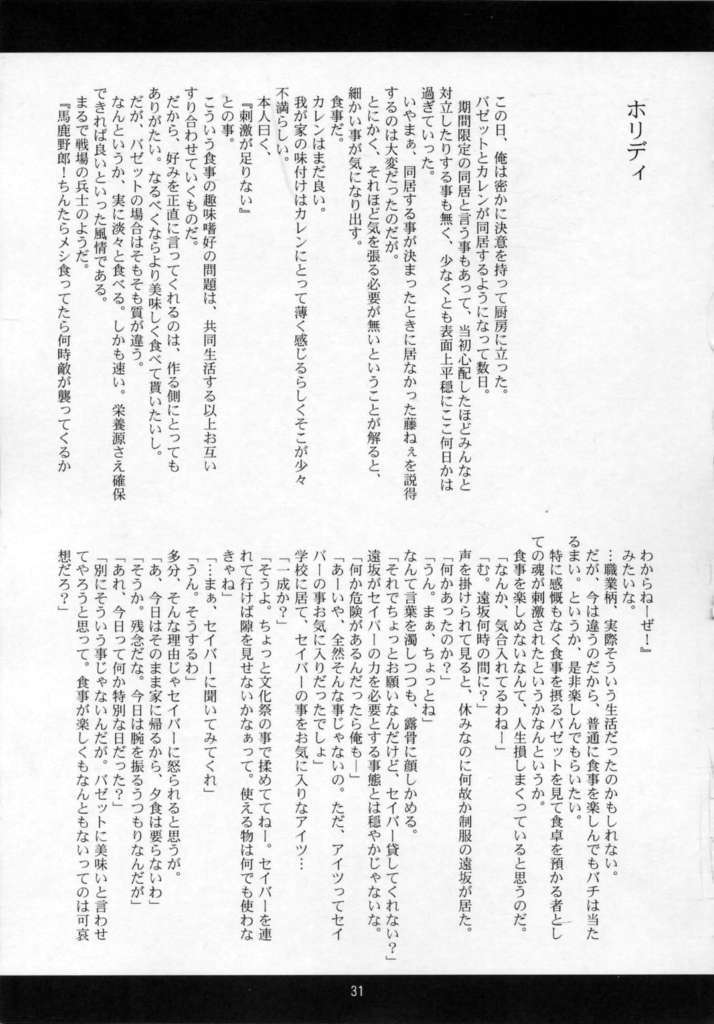 ホリディ
この日、俺は密かに決意を持って厨房に立った。
バゼットとカレンが同居するようになって数日。
期間限定の同居と言う事もあって、当初心配したほどみんなと
対立したりする事も無く、少なくとも表面上平穏にここ何日かは
過ぎていった。
いやまぁ、同居する事が決まったときに居なかった藤ねぇを説得
するのは大変だったのだが。
とにかく、それほど気を張る必要が無いということが解ると、
細かい事が気になり出す。
食事だ。
カレンはまだ良い。
我が家の味付けはカレンにとって薄く感じるらしくそこが少々
不満らしい。
本人曰く、
『刺激が足りない』
との事。
こういう食事の趣味嗜好の問題は、共同生活する以上お互い
すり合わせていくものだ。
だから、好みを正直に言ってくれるのは、作る側にとっても
ありがたい。なるべくならより美味しく食べて貰いたいし。
だが、バゼットの場合はそもそも質が違う。
なんというか、実に淡々と食べる。しかも速い。栄養源さえ確保
できれば良いといった風情である。
まるで戦場の兵士のようだ。
『馬鹿野郎！ちんたらメシ食ってたら何時敵が襲ってくるか
わからねーぜ！』
みたいな。
…職業柄、実際そういう生活だったのかもしれない。
だが、今は違うのだから、普通に食事を楽しんでもバチは当た
るまい。というか、是非楽しんでもらいたい。
特に感慨もなく食事を摂るバゼットを見て食卓を預かる者とし
ての魂が刺激されたというかなんというか。
食事を楽しめないなんて、人生損しまくっていると思うのだ。
「なんか、気合入れてるわねー」
「む。遠坂何時の間に？」
声を掛けられて見ると、休みなのに何故か制服の遠坂が居た。
「何かあったのか？」
「うん。まぁ、ちょっとね」
なんて言葉を濁しつつも、露骨に顔しかめる。
「それでちょっとお願いなんだけど、セイバー貸してくれない？」
遠坂がセイバーの力を必要とする事態とは穏やかじゃないな。
「何か危険があるんだったら俺も―」
「あーいや、全然そんな事じゃないの。ただ、アイツってセイ
バーの事お気に入りだったでしょ」
学校に居て、セイバーの事をお気に入りなアイツ…
「一成か？」
「そうよ。ちょっと文化祭の事で揉めててねー。セイバーを連
れて行けば隙を見せないかなぁって。使える物は何でも使わな
きゃね」
「…まぁ、セイバーに聞いてみてくれ」
「うん。そうするわ」
多分、そんな理由じゃセイバーに怒られると思うが。
「あ、今日はそのまま家に帰るから、夕食は要らないわ」
「そうか。残念だな。今日は腕を振るうつもりなんだが」
「あれ、今日って何か特別な日だった？」
「別にそういう事じゃないんだが。バゼットに美味いと言わせ
てやろうと思って。食事が楽しくもなんともないってのは可哀
想だろ？」
31